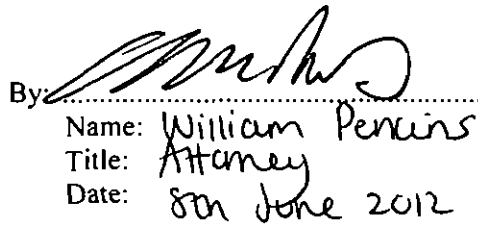 By:
Name: William Perkins
Title: Attorney
Date: 8th June 2012